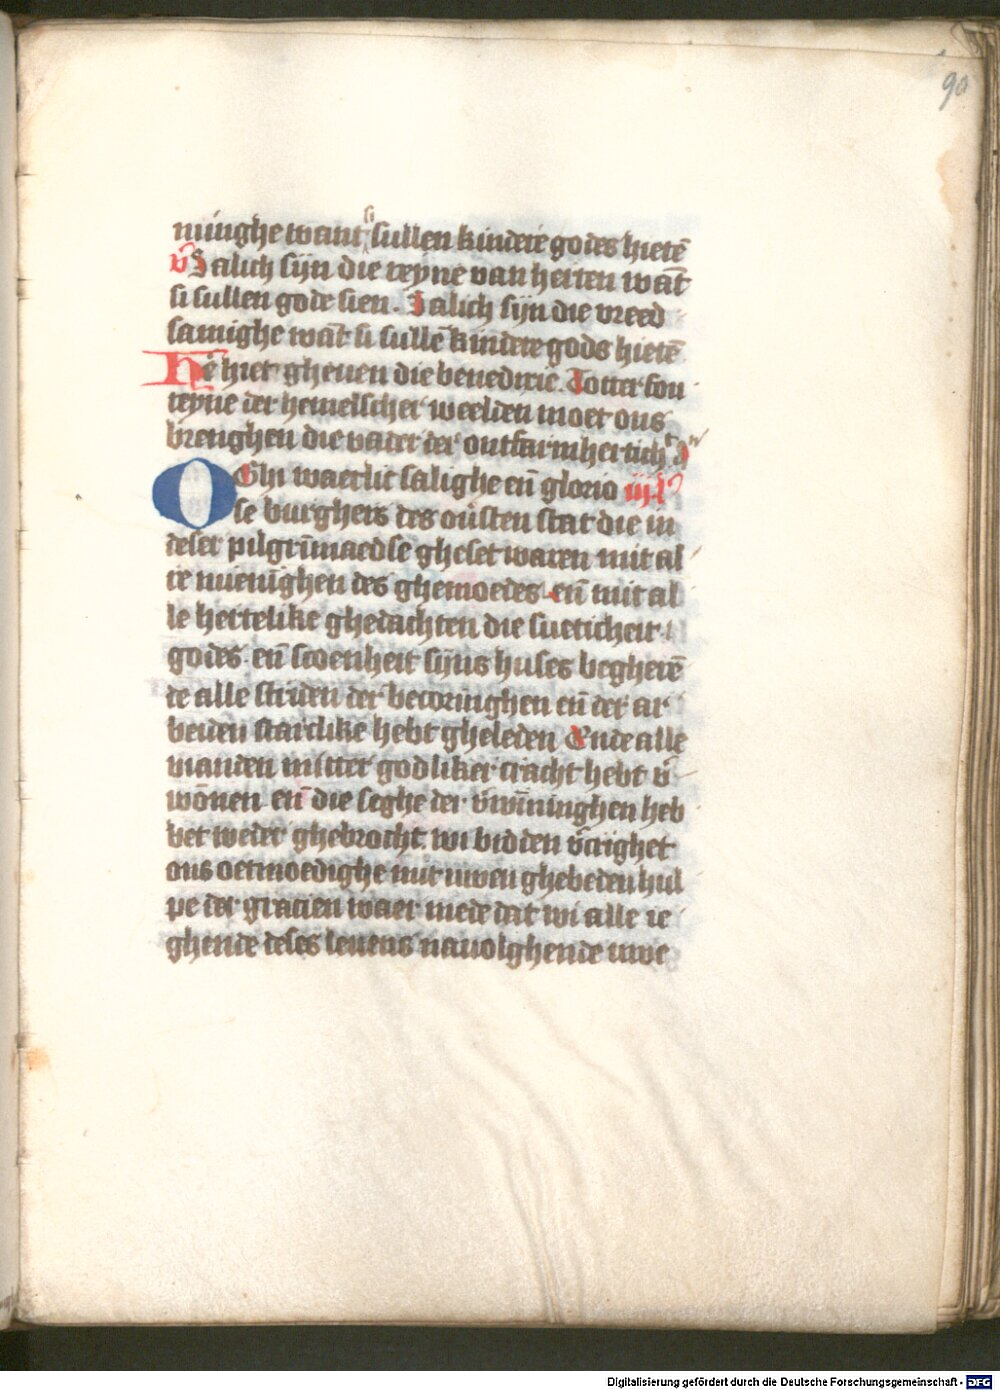 90
minghe want si sullen kindere godes hietē
v̄ Salich sijn die reyne van herten wāt
si sullen gode sien. Salich sijn die vreed
samighe wāt si sullē kindere gods hietē
hē hier gheuen die benedixie. Totter fon
teyne der hemelscher weelden moet ons
brenghen die vader der ontfarmherticht
O Ghi waerlic salighe eñ glorio iij l
se burghers des ouersten stat die in
deser pilgrimaedse gheset waren mit al
re nueuighen des ghemoedes. eñ mit al
le hertelike ghedachten die sueticheit
godes. eñ scoenheit sijns huses begherē
de alle striden der becoringhen eñ der ar
beiden starclike hebt gheleden Ende alle
vianden mitter godliker cracht hebt v̄
wōnen eñ die seghe der v̄winninghen heb
bet weder ghebrocht. wi bidden v̄crighet
ons oetmoedighe mit uwen ghebeden hul
pe der gracien waer mede dat wi alle ie
ghende deses leuens nauolghende uwe
Digitalisierung gefördert durch die Deutsche Forschungsgemeinschaft - DFG